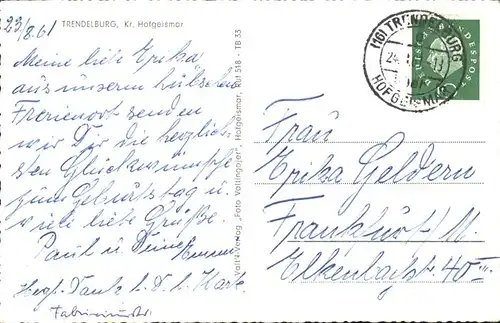 23/8.61
TRENDELBURG, Kr. Hofgeismar
Meine liebe Erika
aus unserem hübschen
Ferienort senden
wir Dir die herzlich-
sten Glückwünsche
zum Geburtstag u.
viele liebe Grüße.
Paul u. Deine
Herzl. Dank f. D. l. Karte
Vallit-Verlag "Foto Wallinggger", Hofgeismar, Ruf 518 TB 33
(16) TRENDELBURG
HOFGEISMAR
BUNDESPOST
Frau
Erika Geldern
Frankfurt/M
Elkenbachstr. 40